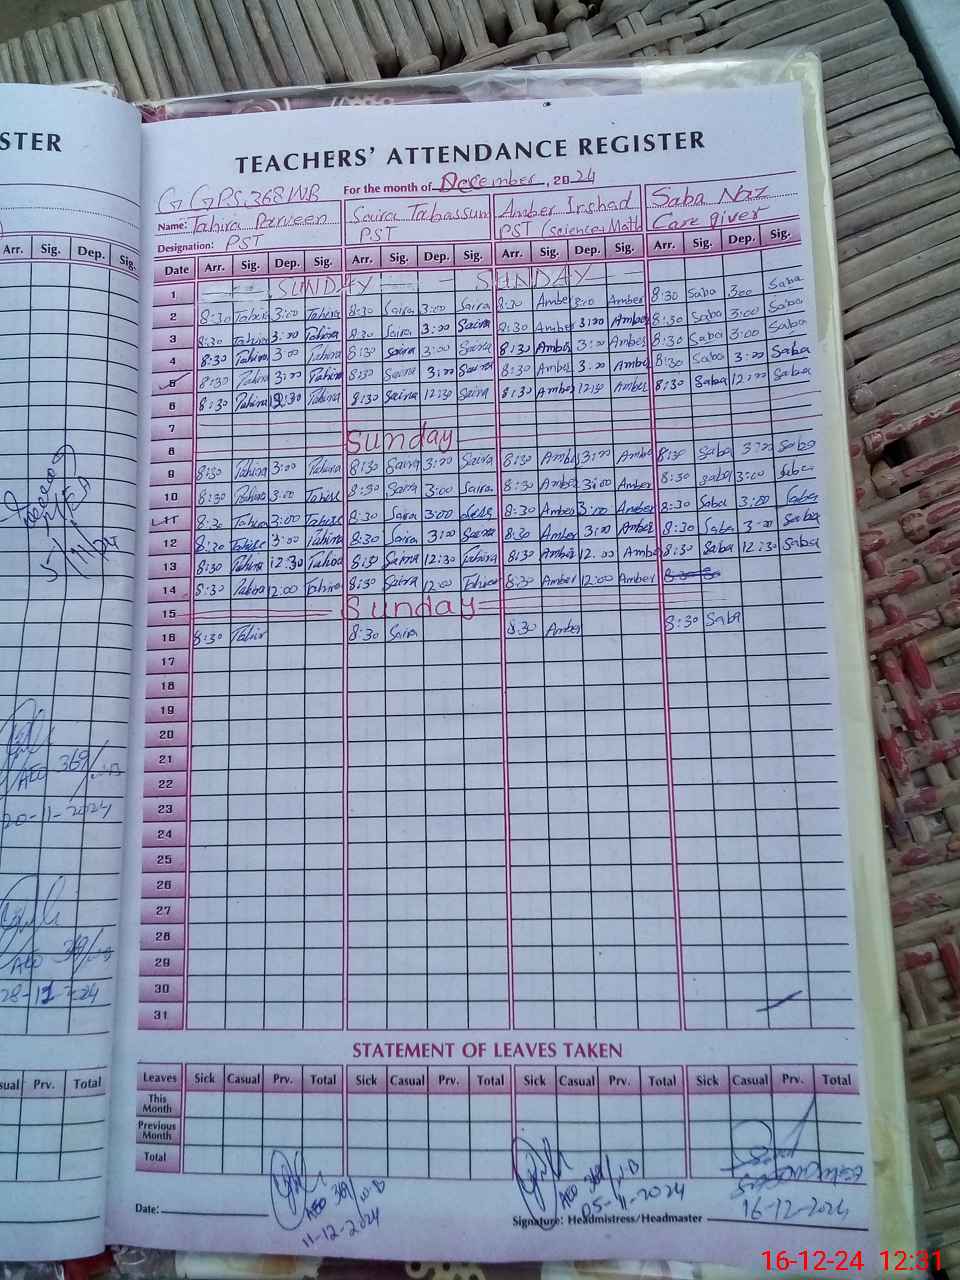 STER
TEACHERS' ATTENDANCE REGISTER
G G PS, 368/WB For the month of December, 2024
Name: Tahira Parveen Saira Tabassum Amber Irshad Saba Naz
Designation: PST PST PST (science, Math Care giver
Arr. Sig. Dep. Sig.
Date Arr. Sig. Dep. Sig. Arr. Sig. Dep. Sig. Arr. Sig. Dep. Sig. Arr. Sig. Dep. Sig.
1 SUNDAY SUNDAY
2 8:30 Tahira 3:00 Tahira 8:30 Saira 3:00 Saira 8:30 Amber 3:00 Amber 8:30 Saba 3:00 Saba
3 8:30 Tahira 3:00 Tahira 8:30 Saira 3:00 Saira 8:30 Amber 3:00 Amber 8:30 Saba 3:00 Saba
4 8:30 Tahira 3:00 Tahira 8:30 Saira 3:00 Saira 8:30 Amber 3:00 Amber 8:30 Saba 3:00 Saba
5 8:30 Tahira 3:00 Tahira 8:30 Saira 3:00 Saira 8:30 Amber 3:00 Amber 8:30 Saba 3:00 Saba
6 8:30 Tahira 12:30 Tahira 8:30 Saira 12:30 Saira 8:30 Amber 12:30 Amber 8:30 Saba 12:00 Saba
7
8 Sunday
9 8:30 Tahira 3:00 Tahira 8:30 Saira 3:00 Saira 8:30 Amber 3:00 Amber 8:30 Saba 3:00 Saba
10 8:30 Tahira 3:00 Tahira 8:30 Saira 3:00 Saira 8:30 Amber 3:00 Amber 8:30 Saba 3:00 Saba
11 8:30 Tahira 3:00 Tahira 8:30 Saira 3:00 8:30 Amber 3:00 Amber 8:30 Saba 3:00 Saba
12 8:30 Tahira 3:00 Tahira 8:30 Saira 3:00 Saira 8:30 Amber 3:00 Amber 8:30 Saba 3:00 Saba
13 8:30 Tahira 12:30 Tahira 8:30 Saira 12:30 Tahira 8:30 Amber 12:00 Amber 8:30 Saba 12:30 Saba
14 8:30 Tahira 12:00 Tahira 8:30 Saira 12:00 8:30 Amber 12:00 Amber
15 Sunday
16 8:30 Tahir 8:30 Saira 8:30 Amber 8:30 Saba
17
18
19
20
21
22
23
24
25
26
27
28
29
30
31
AEO 369/WB
20-11-2024
AEO 369/WB
28-11-2024
STATEMENT OF LEAVES TAKEN
sual Prv. Total
Leaves Sick Casual Prv. Total Sick Casual Prv. Total Sick Casual Prv. Total Sick Casual Prv. Total
This Month
Previous Month
Total
AEO 369/WB
11-12-2024
AEO 369/WB
05-11-2024
16-12-2024
Date: Signature: Headmistress/Headmaster
16-12-24 12:31